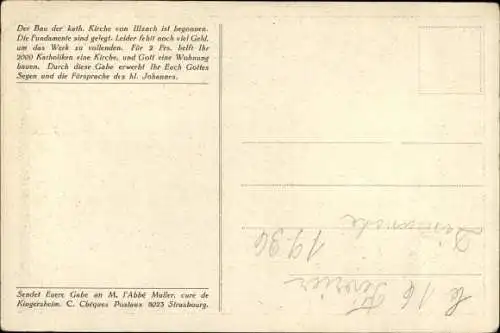 Der Bau der kath. Kirche von Illzach ist begonnen.
Die Fundamente sind gelegt. Leider fehlt noch viel Geld,
um das Werk zu vollenden. Für 2 Frs. helft Ihr
2000 Katholiken eine Kirche, und Gott eine Wohnung
bauen. Durch diese Gabe erwerbt Ihr Euch Gottes
Segen und die Fürsprache des hl. Johannes.
Sendet Euere Gabe an M. l'Abbé Muller, curé de
Kingersheim. C. Chèques Postaux 8023 Strasbourg.
Dimanche
le 16 Février
1936